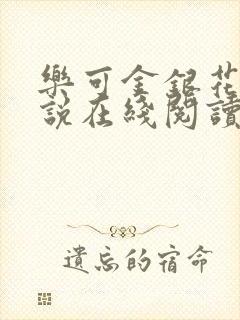 樂可金銀花
說在綫閱讀
遺忘的宿命